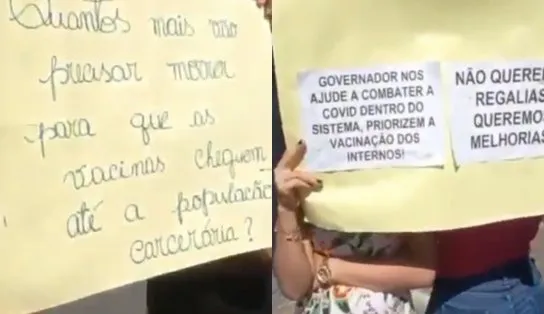 Quantos mais vão
precisar morrer
para que as
vacinas cheguem
até a população
carcerária?
GOVERNADOR NOS
AJUDE A COMBATER A
COVID DENTRO DO
SISTEMA, PRIORIZEM A
VACINAÇÃO DOS
INTERNOS!
NÃO QUEREM
REGALIAS
QUEREMOS
MELHORIAS